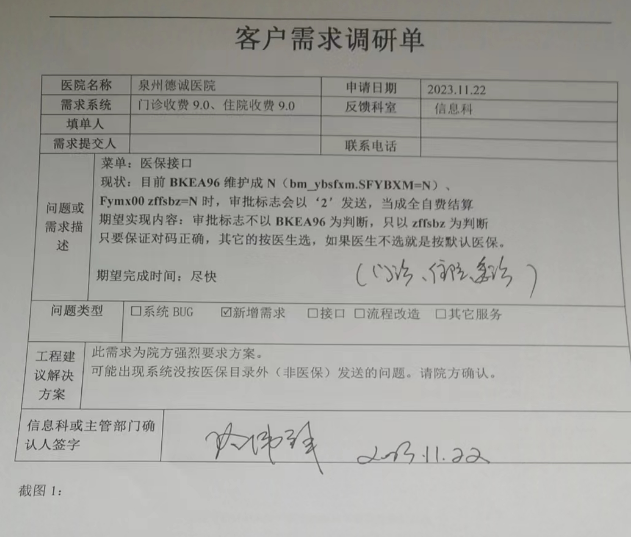 客户需求调研单
医院名称 泉州德诚医院 申请日期 2023.11.22
需求系统 门诊收费 9.0、住院收费 9.0 反馈科室 信息科
填单人
需求提交人 联系电话
问题或需求描述
菜单：医保接口
现状：目前 BKEA96 维护成 N（bm_ybsfxm.SFYBXM=N）、
Fymx00 zffsbz=N 时，审批标志会以‘2’发送，当成全自费结算
期望实现内容：审批标志不以 BKEA96 为判断，只以 zffsbz 为判断
只要保证对码正确，其它的按医生选，如果医生不选就是按默认医保。
期望完成时间：尽快
（门诊、住院、急诊）
问题类型 □系统 BUG ☑新增需求 □接口 □流程改造 □其它服务
工程建议解决方案
此需求为院方强烈要求方案。
可能出现系统没按医保目录外（非医保）发送的问题。请院方确认。
信息科或主管部门确认人签字
2023.11.22
截图 1：